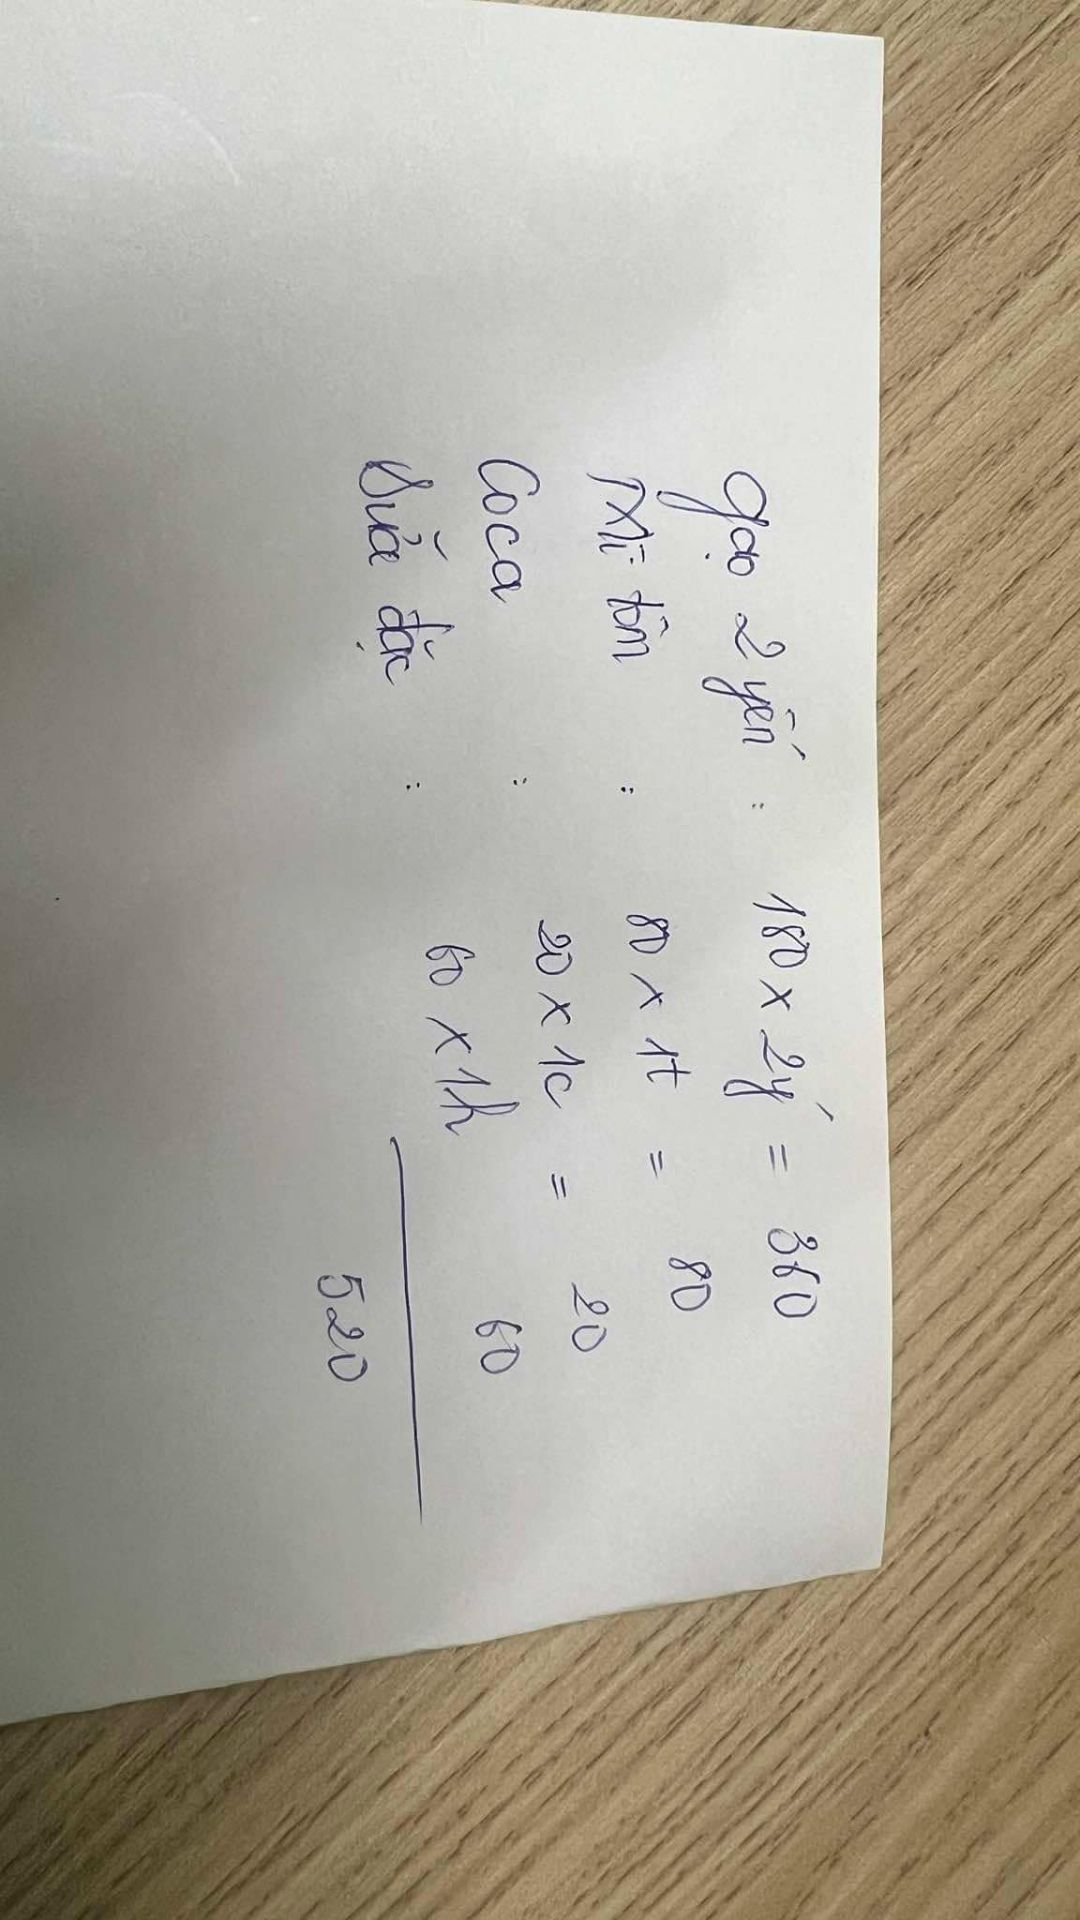 Gạo 2 yến : 180 x 2y = 360
Mì tôm : 80 x 1t = 80
Coca : 20 x 1c = 20
Sữa đặc : 60 x 1h 60
520